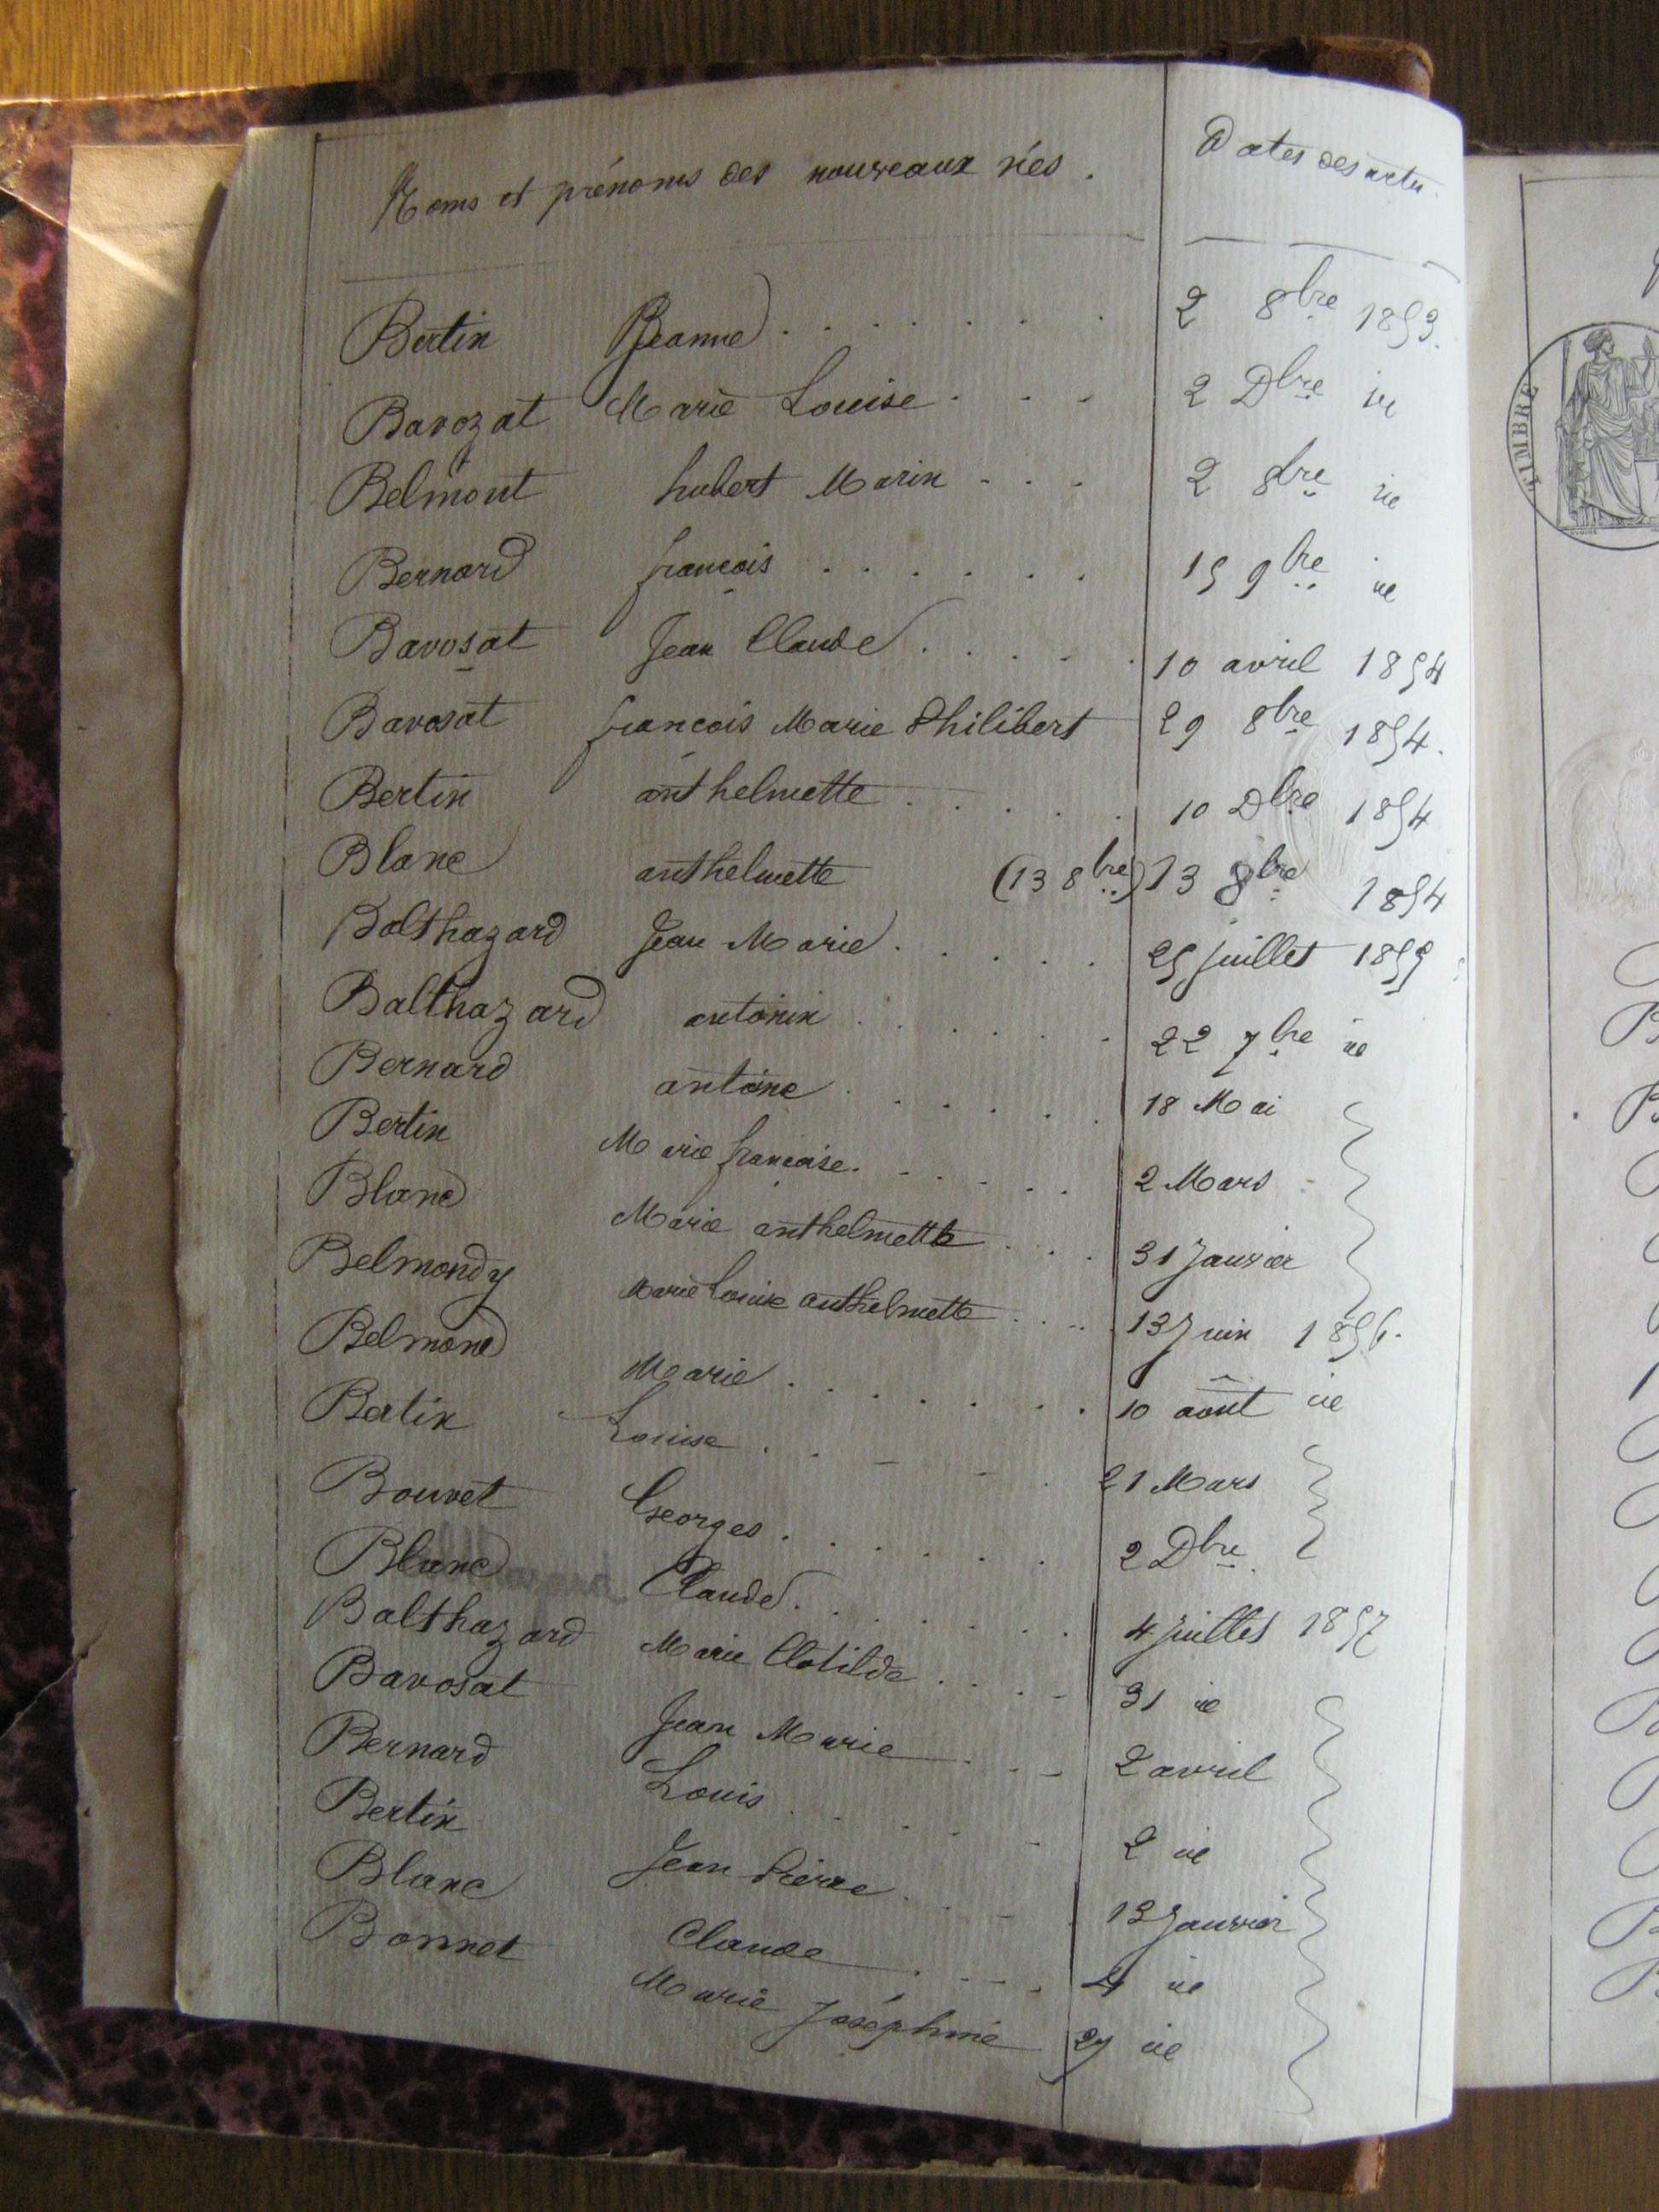 Noms et prénoms des nouveaux nés. Dates des actes.
Bertin Jeanne 2 8bre 1853.
Bavozat Marie Louise 2 Dbre id
Belmont hubert Marin 2 8bre id
Bernard françois 15 9bre id
Bavosat Jean Claude 10 avril 1854
Bavosat françois Marie Philibert 29 8bre 1854.
Bertin anthelmette 10 Dbre 1854
Blanc anthelmette (13 8bre) 13 8bre 1854
Balthazard Jean Marie 25 juillet 1855
Balthazard antonin 22 7bre id
Bernard antoine 18 Mai
Bertin Marie françoise 2 Mars
Blanc Marie anthelmette 31 Janvier
Belmondy Marie Louise anthelmette 13 Juin 1856.
Belmond Marie 10 août id
Bertin Louise 21 Mars
Bouvet Georges 2 Dbre
Blanc Claude 4 juillet 1857
Balthazard Marie Clotilde 31 id
Bavosat Jean Marie 2 avril
Bernard Louis 2 id
Bertin Jean Pierre 13 Janvier
Blanc Claude 4 id
Bonnet Marie Joséphine 27 id
TIMBRE